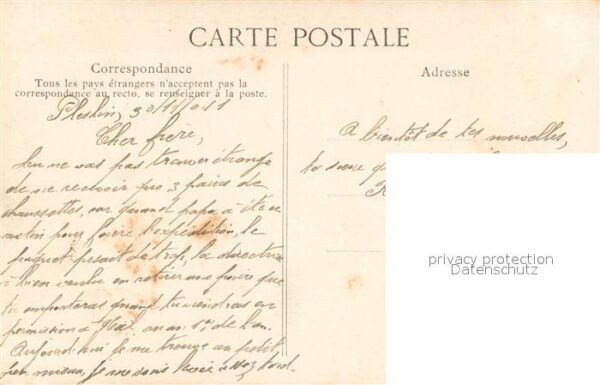 CARTE POSTALE
Correspondance
Tous les pays étrangers n'acceptent pas la
correspondance au recto, se renseigner à la poste.
Plestin, 30/11/011
Cher frère,
tu ne vas pas trouver étrange
de ne recevoir que 3 paires de
chaussettes, car quand papa a été ce
matin pour faire l'expédition, le
paquet pesait de trop, la directrice
a bien voulu en retirer une paire que
tu emporteras quand tu viendras en
permission à Noël ou au 1er de l'an.
Aujourd'hui je me trouve un petit
peu mieux, je me sens
Adresse
A bientôt de tes nouvelles,
ta soeur
privacy protection
Datenschutz